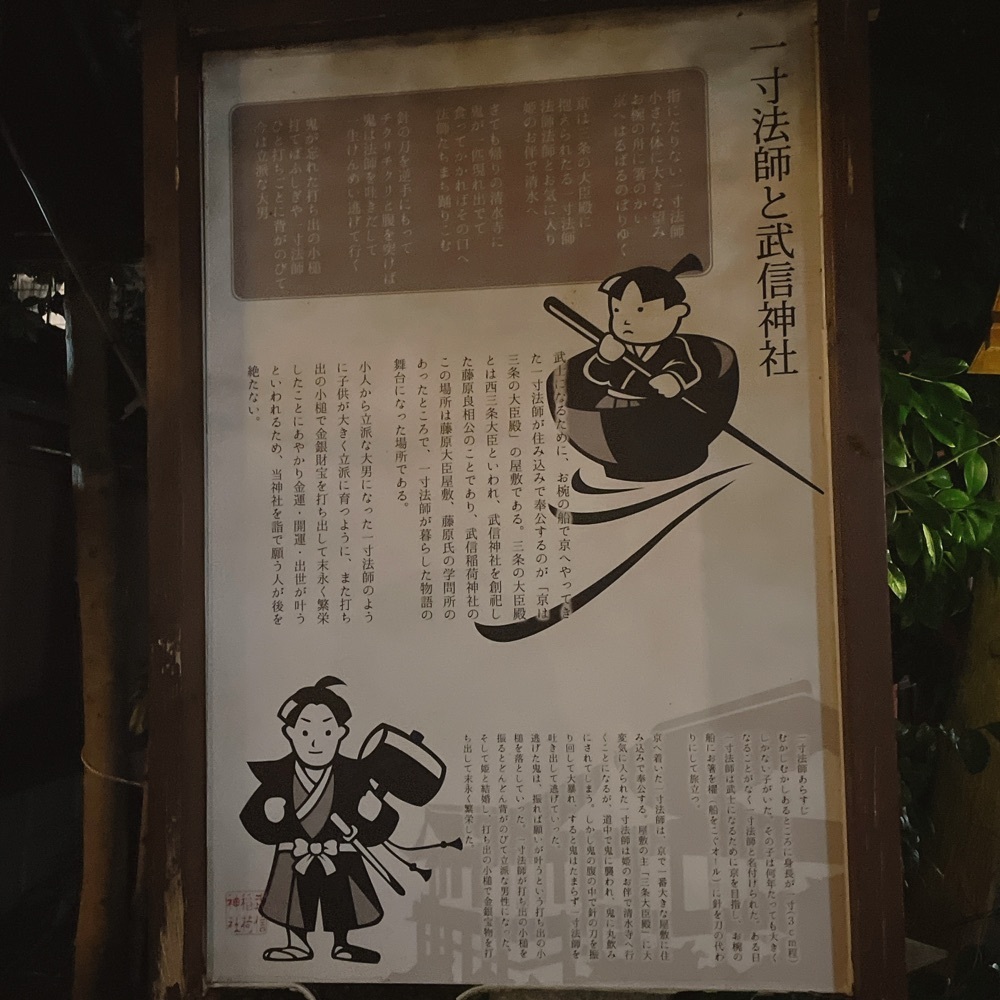 一寸法師と武信神社
指にたりない一寸法師
小さな体に大きな望み
お椀の舟に箸のかい
京へはるばるのぼりゆく
京は三条の大臣殿に
抱えられたる一寸法師
法師法師とお気に入り
姫のお伴で清水へ
さても帰りの清水寺に
鬼が一匹現れ出でて
食ってかかればその口へ
法師たちまち踊りこむ
針の刀を逆手にもって
チクリチクリと腹を突けば
鬼は法師を吐きだして
一生けんめい逃げて行く
鬼が忘れた打ち出の小槌
打てばふしぎや一寸法師
ひと打ちごとに背がのびて
今は立派な大男
武士になるために、お椀の船で京へやってき
た一寸法師が住み込みで奉公するのが「京は
三条の大臣殿」の屋敷である。三条の大臣殿
とは西三条大臣といわれ、武信神社を創祀し
た藤原良相公のことであり、武信稲荷神社の
この場所は藤原大臣屋敷、藤原氏の学問所の
あったところで、一寸法師が暮らした物語の
舞台になった場所である。
小人から立派な大男になった一寸法師のよう
に子供が大きく立派に育つように、また打ち
出の小槌で金銀財宝を打ち出して末永く繁栄
したことにあやかり金運・開運・出世が叶う
といわれるため、当神社を詣で願う人が後を
絶たない。
一寸法師あらすじ
むかしむかしあるところに身長が一寸(3cm程)
しかない子がいた。その子は何年たっても大きく
なることがなく一寸法師と名付けられた。ある日
一寸法師は武士になるために京を目指し、お椀の
船にお箸を櫂(船をこぐオール)に針を刀の代わ
りにして旅立つ。
京へ着いた一寸法師は、京で一番大きな屋敷に住
み込みで奉公する。屋敷の主「三条大臣殿」に大
変気に入られた一寸法師は姫のお伴で清水寺へ行
くことになるが、道中で鬼に襲われ、鬼に丸飲み
にされてしまう。しかし鬼の腹の中で針の刀を振
り回して大暴れ、すると鬼はたまらず一寸法師を
吐き出して逃げていった。
逃げた鬼は、振れば願いが叶うという打ち出の小
槌を落としていった。一寸法師が打ち出の小槌を
振るとどんどん背がのびて立派な男性になった。
そして姫と結婚し、打ち出の小槌で金銀宝物を打
ち出して末永く繁栄した。